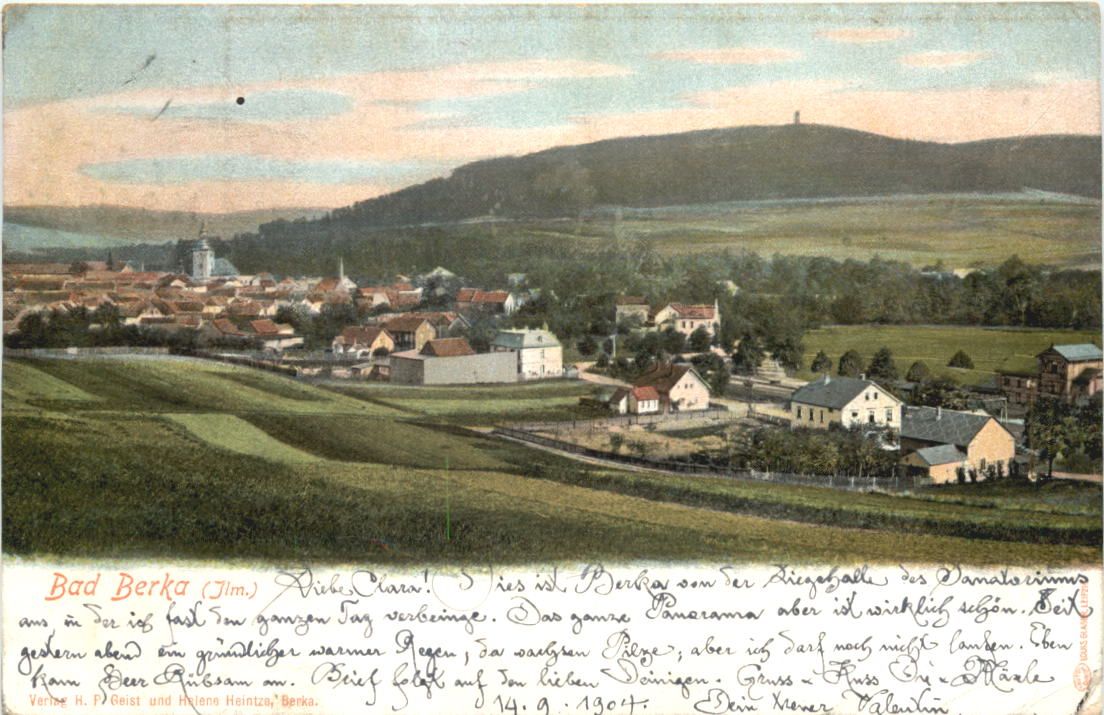 Bad Berka (Jlm.)
Liebe Clara! Dies ist Berka von der Liegehalle des Sanatoriums
aus, in der ich fast den ganzen Tag verbringe. Das ganze Panorama aber ist wirklich schön. Seit
gestern abend ein gründlicher warmer Regen, da wachsen Pilze, aber ich darf noch nicht laufen. Eben
kam Herr Rübsam an. Brief folgt auf den lieben Deinigen. Gruss u. Kuss Dir u.
14.9.1904. Dein treuer Valentin.
Verlag H. F. Geist und Helene Heintze, Berka.
LOUIS GLASER, LEIPZIG